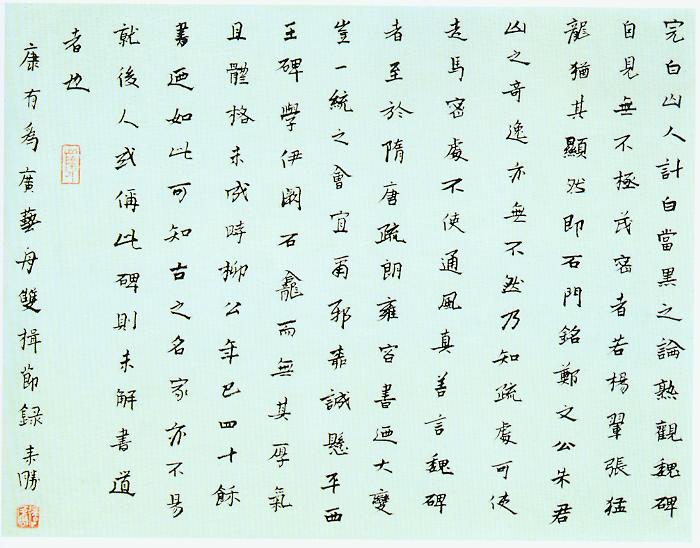 完白山人計白當黑之論熟觀魏碑
自見無不極茂密者若楊翬張猛
龍猶其顯然即石門銘鄭文公朱君
山之奇逸亦無不然乃知疏處可使
走馬密處不使通風真善言魏碑
者至於隋唐疏朗雍容書迺大變
豈一統之會宜爾邪誠懸平西
王碑學伊闕石龕而無其厚氣
且體格未成時柳公年已四十餘
書迺如此可知古之名家亦不易
就後人或稱此碑則未解書道
者也
康有為廣藝舟雙楫節録